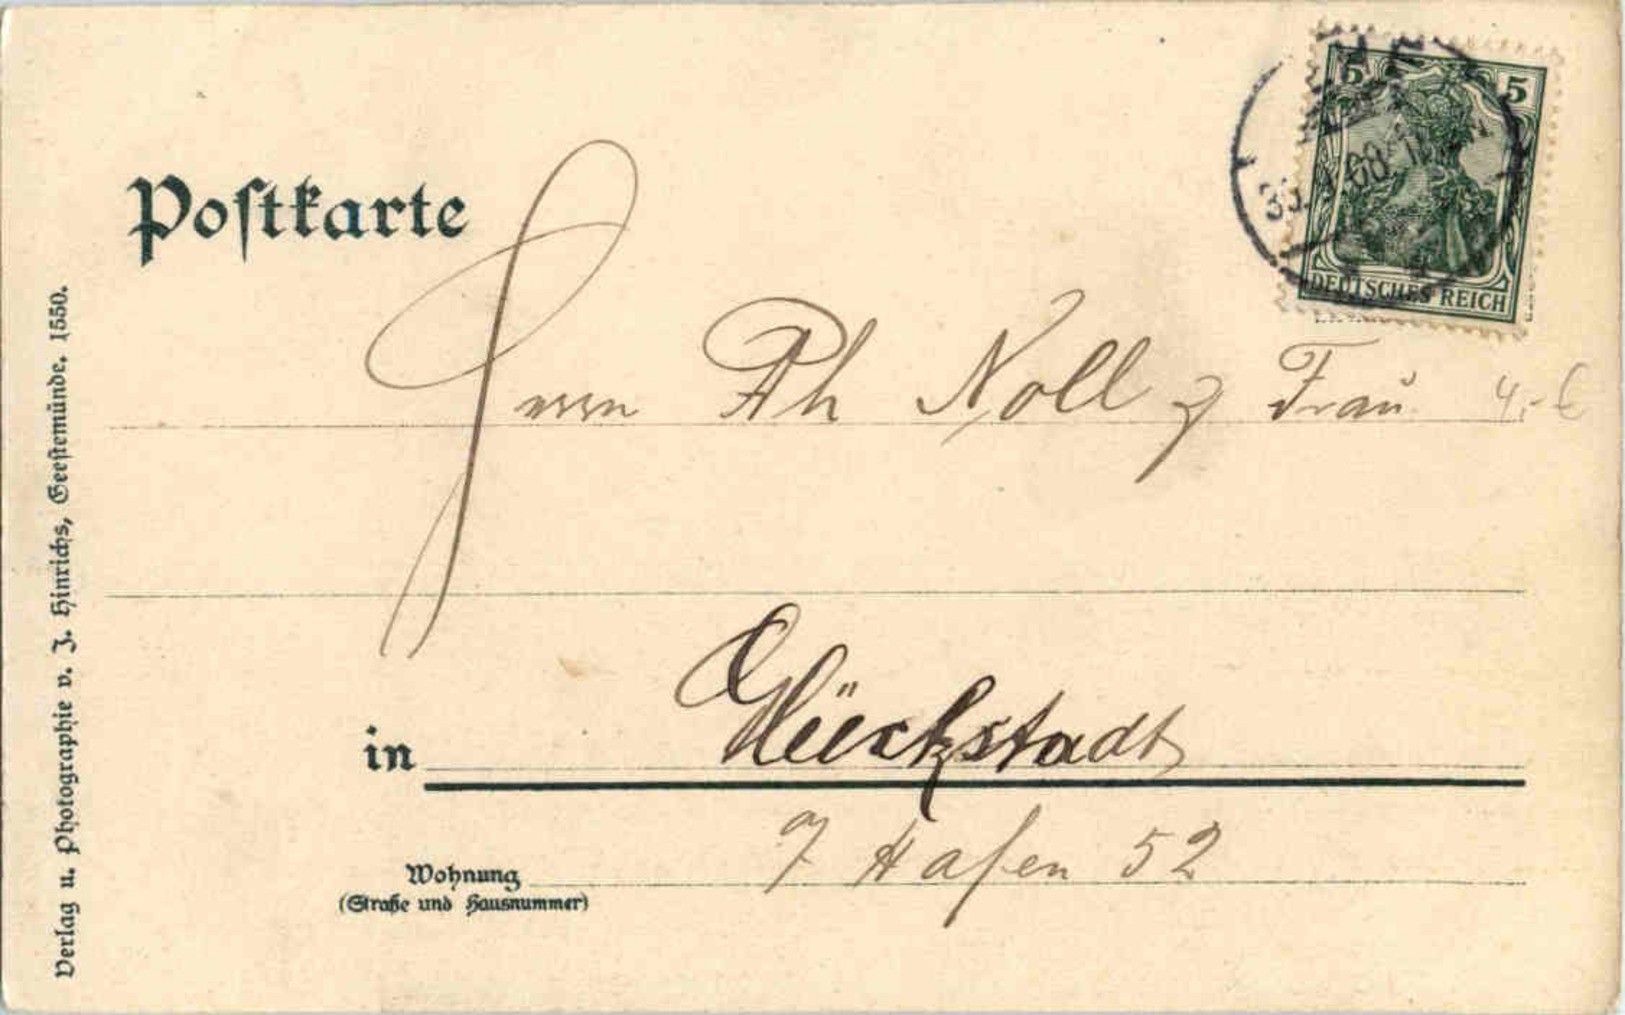 Postkarte
5 5
DEUTSCHES REICH
Herrn Ph Noll Frau 4,- €
in Glückstadt
Hafen 52
Wohnung
(Straße und Hausnummer)
Verlag u. Photographie v. J. Hinrichs, Geestemünde. 1550.